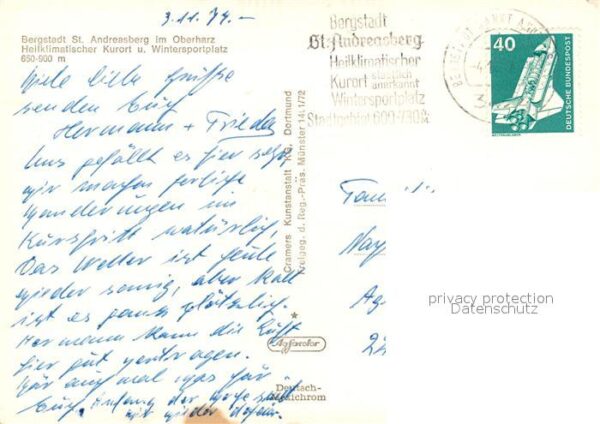 3.11.79.-
Bergstadt St. Andreasberg im Oberharz
Heilklimatischer Kurort u. Wintersportplatz
650-900 m
Viele liebe Grüße
senden Euch
Hermann + Frieda
Uns gefällt es hier sehr
wir machen herliche
Wanderungen im
natürlich,
Das Wetter ist heute
wieder sonnig, aber kalt
ist es ganz plötzlich.
Hermann kann die Luft
hier gut vertragen.
Wär auch mal was für
Euch, Anfang der Woche sind
wir wieder daheim.
Cramers Kunstanstalt KG, Dortmund
Freigeg. d. Reg.-Präs. Münster 14:1/72
Agfacolor
Deutsch-
Bergstadt
St. Andreasberg
Heilklimatischer
Kurort staatlich anerkannt
Wintersportplatz
40
DEUTSCHE BUNDESPOST
privacy protection
Datenschutz